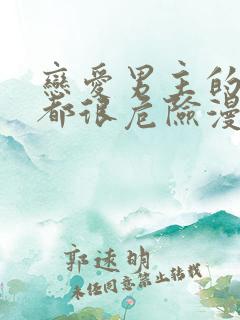 戀愛男主的
都很危險漫
郭遠明
未任同意禁止转載